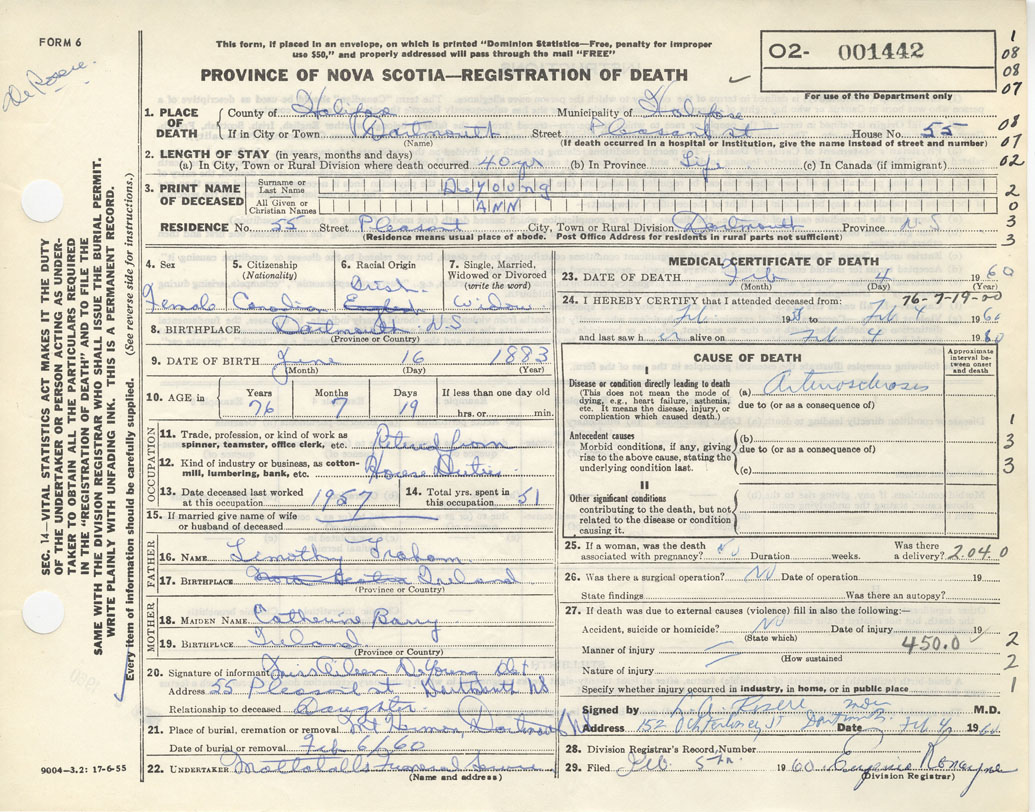 FORM 6
This form, if placed in an envelope, on which is printed "Dominion Statistics—Free, penalty for improper
use $50," and properly addressed will pass through the mail "FREE"
PROVINCE OF NOVA SCOTIA—REGISTRATION OF DEATH
02- 001442
For use of the Department only
1
08
08
07
08
07
02
2
0
3
3
1. PLACE OF DEATH
County of Halifax Municipality of Halifax
If in City or Town Dartmouth Street Pleasant st House No. 55
(Name) (If death occurred in a hospital or institution, give the name instead of street and number)
2. LENGTH OF STAY (in years, months and days)
(a) In City, Town or Rural Division where death occurred 40 yrs (b) In Province Life (c) In Canada (if immigrant)
3. PRINT NAME OF DECEASED
Surname or Last Name DeYOUNG
All Given or Christian Names ANN
RESIDENCE No. 55 Street Pleasant City, Town or Rural Division Dartmouth Province N S
(Residence means usual place of abode. Post Office Address for residents in rural parts not sufficient)
4. Sex Female
5. Citizenship (Nationality) Canadian
6. Racial Origin Irish English
7. Single, Married, Widowed or Divorced (write the word) Widow
8. BIRTHPLACE Dartmouth N.S
(Province or Country)
9. DATE OF BIRTH June 16 1883
(Month) (Day) (Year)
10. AGE in Years 76 Months 7 Days 19 If less than one day old hrs. or min.
OCCUPATION
11. Trade, profession, or kind of work as spinner, teamster, office clerk, etc. Retired from
12. Kind of industry or business, as cotton-mill, lumbering, bank, etc. House Duties
13. Date deceased last worked at this occupation 1957
14. Total yrs. spent in this occupation 51
15. If married give name of wife or husband of deceased
FATHER
16. NAME Timothy Graham
17. BIRTHPLACE Nova Scotia Ireland
(Province or Country)
MOTHER
18. MAIDEN NAME Catherine Barry
19. BIRTHPLACE Ireland
(Province or Country)
20. Signature of informant Eileen DeYoung
Address 55 Pleasant st Dartmouth NS
Relationship to deceased Daughter
21. Place of burial, cremation or removal Mt Hermon, Dartmouth NS
Date of burial or removal Feb 6/60
22. UNDERTAKER Mattatalls Funeral Service
(Name and address)
MEDICAL CERTIFICATE OF DEATH
23. DATE OF DEATH Feb 4 1960
(Month) (Day) (Year)
76-7-19-00
24. I HEREBY CERTIFY that I attended deceased from:
Feb 1958 to Feb 4 1960
and last saw her alive on Feb 4 1960
CAUSE OF DEATH
Approximate interval between onset and death
I
Disease or condition directly leading to death
(This does not mean the mode of dying, e.g., heart failure, asthenia, etc. It means the disease, injury, or complication which caused death.)
(a) Arteriosclerosis
due to (or as a consequence of)
Antecedent causes
Morbid conditions, if any, giving rise to the above cause, stating the underlying condition last.
(b)
due to (or as a consequence of)
(c)
1
3
3
II
Other significant conditions
contributing to the death, but not related to the disease or condition causing it.
25. If a woman, was the death associated with pregnancy? No Duration weeks. Was there a delivery? 204.0
26. Was there a surgical operation? No Date of operation 19
State findings Was there an autopsy?
27. If death was due to external causes (violence) fill in also the following:—
Accident, suicide or homicide? No Date of injury 19
(State which)
Manner of injury 450.0
(How sustained)
Nature of injury
Specify whether injury occurred in industry, in home, or in public place
2
2
1
Signed by Rosere M.D.
Address 152 Ochterloney St Dartmouth Date Feb 4 1960
28. Division Registrar's Record Number
29. Filed Feb 5th 1960 Eugenie Ronayne
(Division Registrar)
9004—3.2: 17-6-55
SEC. 14—VITAL STATISTICS ACT MAKES IT THE DUTY
OF THE UNDERTAKER OR PERSON ACTING AS UNDER-
TAKER TO OBTAIN ALL THE PARTICULARS REQUIRED
IN THE "REGISTRATION OF DEATH" AND FILE THE
SAME WITH THE DIVISION REGISTRAR WHO SHALL ISSUE THE BURIAL PERMIT.
WRITE PLAINLY WITH UNFADING INK. THIS IS A PERMANENT RECORD.
Every item of information should be carefully supplied. (See reverse side for instructions.)